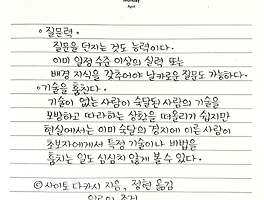 Monday
April
◦ 질문력 ◦
질문을 던지는 것도 능력이다.
이미 일정 수준 이상의 실력 또는
배경 지식을 갖추어야 날카로운 질문도 가능하다.
◦ 기술을 훔친다 ◦
기술이 없는 사람이 숙달된 사람의 기술을
모방하고 따라하는 상황을 떠올리기 쉽지만
현실에서는 이미 숙달의 경지에 이른 사람이
초보자에게서 특정 기술이나 비법을
훔치는 일도 심심치 않게 볼 수 있다.
ⓒ 사이토 다카시 지음, 정현 옮김